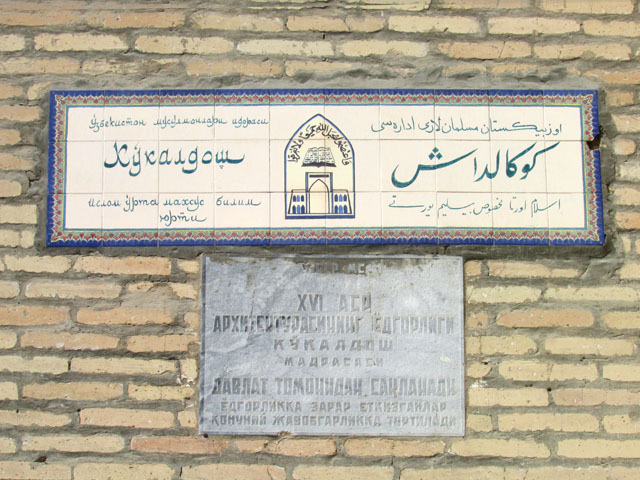 Ўзбекистон мусулмонлари идораси
Кўкалдош
ислом ўрта махсус билим
юрти
اوزبیکستان مسلمان لاری اداره سی
کوکالداش
اسلام اورتا مخصوص بیلیم یورتی
XVI АСР
АРХИТЕКТУРАСИНИНГ ЁДГОРЛИГИ
КЎКАЛДОШ
МАДРАСАСИ
ДАВЛАТ ТОМОНИДАН САҚЛАНАДИ
ЁДГОРЛИККА ЗАРАР ЕТКИЗГАНЛАР
ҚОНУНИЙ ЖАВОБГАРЛИККА ТОРТИЛАДИ